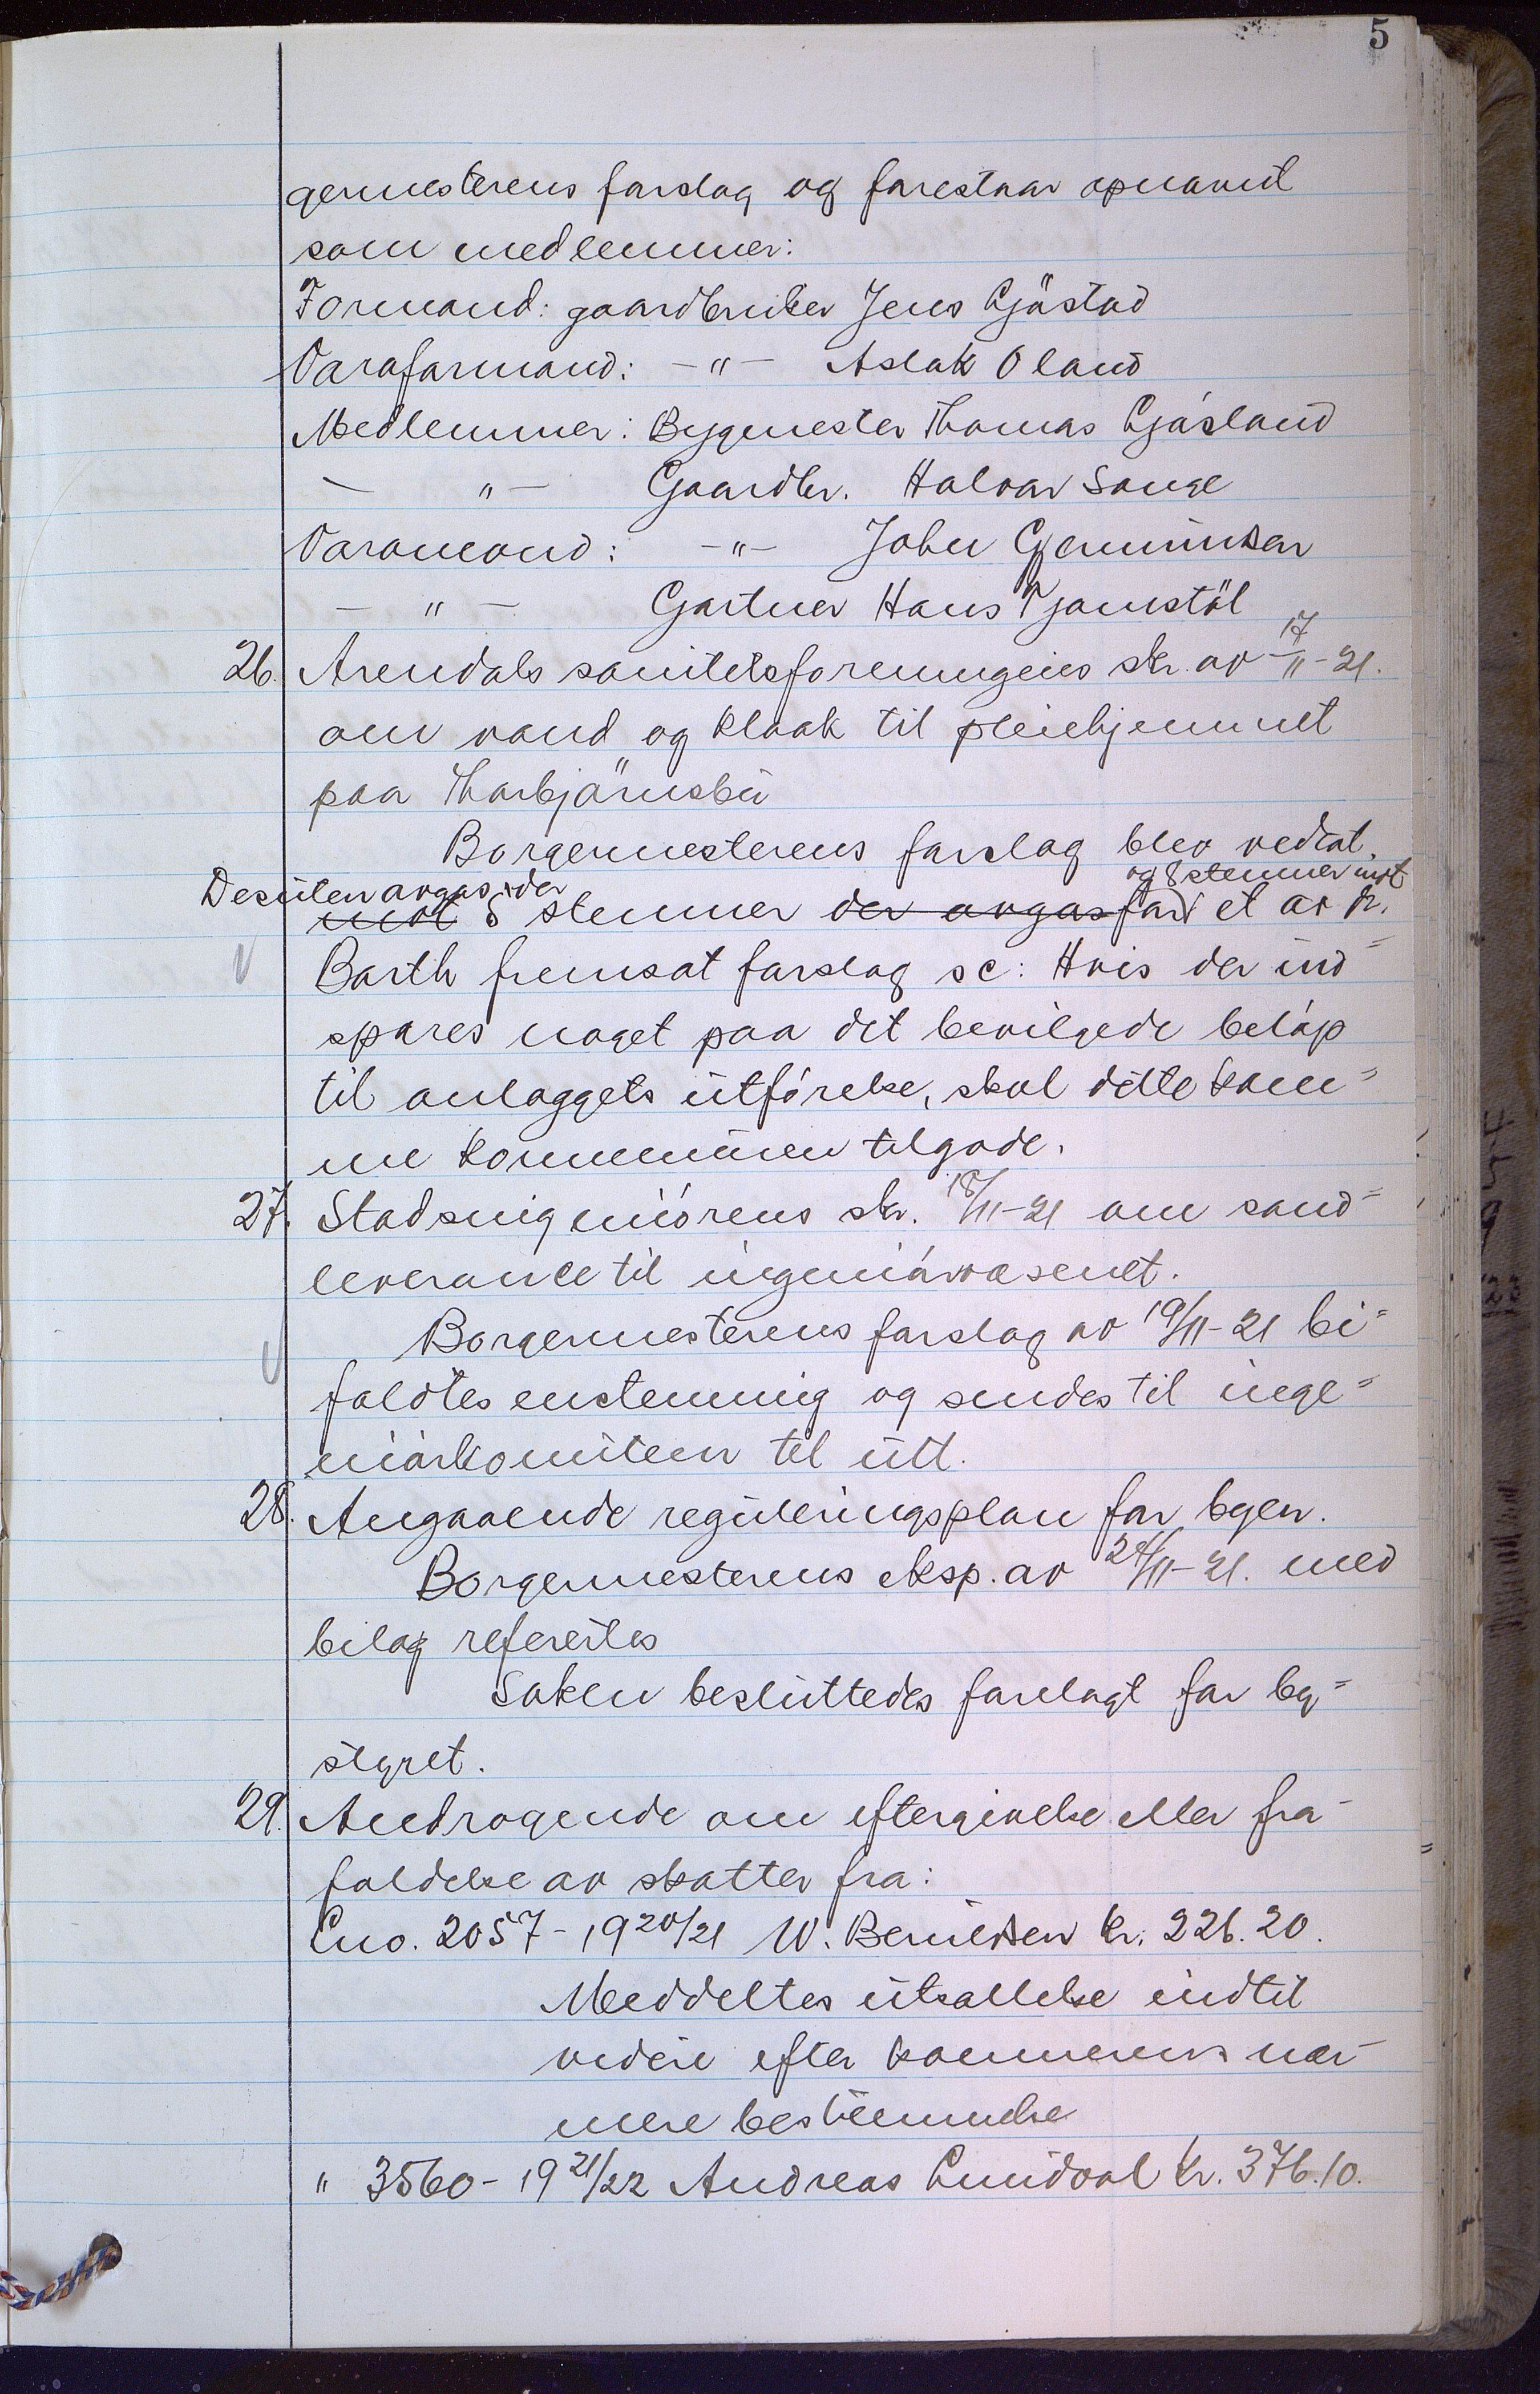 5
germesterens forslag og forestaar opnævnt
som medlemmer:
Formand: gaardbruker Jens Gjöstad
Varaformand: -"- Aslak Öland
Medlemmer: Bygmester Thomas Gjåsland
- " - Gaardbr. Halvor Songe
Varamænd: -"- John Gjerminsen
- " - Gartner Hans Tjamstöl
26. Arendals sanitetsforenings skr. av 17/11-21.
om vand og kloak til pleiehjemmet
paa Thorbjörnsbu
Borgermesterens forslag blev vedtat.
Desuten avgas der og 8 stemmer mot
mot 8 stemmer der avgas for et av dr.
Barth fremsat forslag sc: Hvis der ind=
spares noget paa det bevilgede beløp
til anlæggets utførelse, skal dette kom=
me kommunen tilgode.
27. Stadsingeniörens skr. 18/11-21 om sand=
leverance til ingeniörvæsenet.
Borgermesterens forslag av 19/11-21 bi=
faldtes enstemmig og sendes til inge=
niörkomiteen til utt.
28. Angaaende reguleringsplan for byen.
Borgermesterens eksp. av 24/11-21. med
bilag refereertes
Saken besluttedes forelagt for by=
styret.
29. Andragende om eftergivelse eller fra-
faldelse av skatter fra:
Lno. 2057 - 1920/21 W. Berulsen kr. 226.20.
Meddeltes utsættelse indtil
videre efter kæmnerens nær-
mere bestemmelse
" 3560 - 1921/22 Andreas Lundvol kr. 376.10.